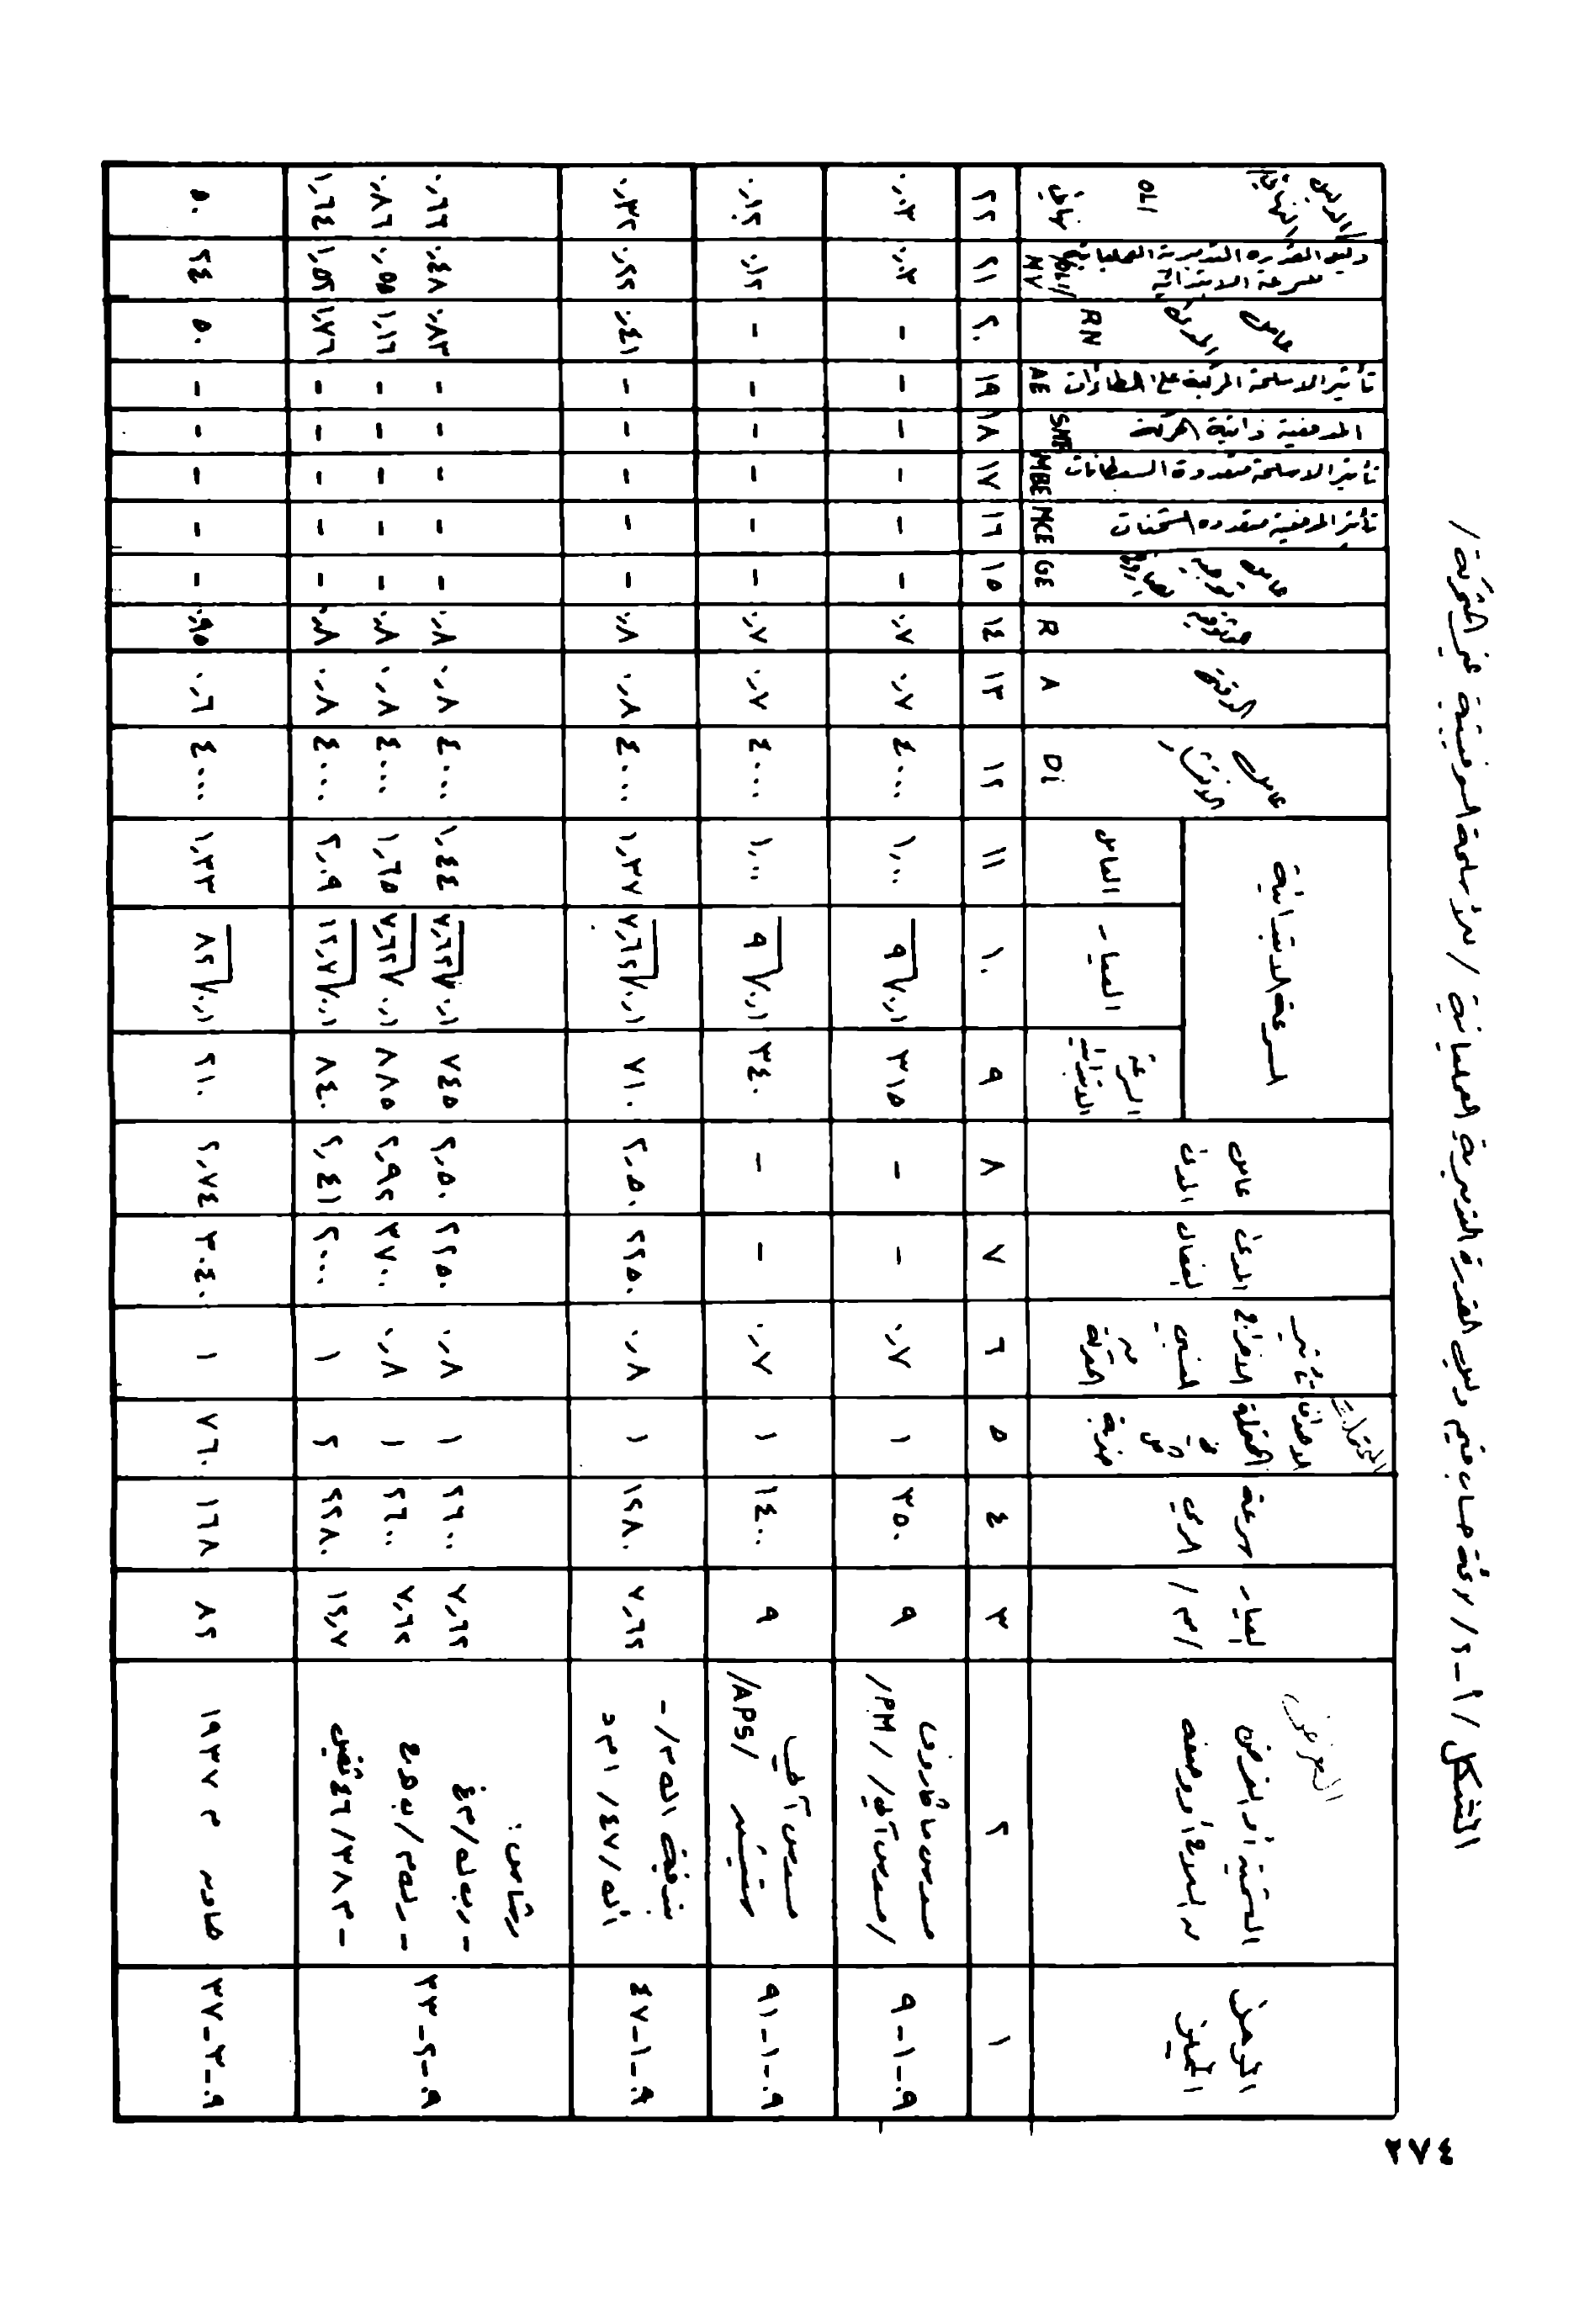 ٢٧٤
الشكل /أ-٢/ ورقة حساب قيم دليل القدرة التدميرية العملياتية /للأسلحة الصوفيتية غير المتحركة/
الرمز المميز
التسمية أو الغرض من السلاح أو وصفه
العيار /مم/
سرعة الرمي
الاهداف المحتملة في كل ضربة
تأثير الاخراج النسبي من المعركة
المدى الفعال
عامل المدى
السرعة الابتدائية
السرعة الابتدائية
العيار
العامل
عامل الانتشار Di
الدقة A
موثوقية R
عامل توجيه GE
تأثير المدفعية متعددة الشحنات MCE
تأثير الاسلحة متعددة السبطانات MBE
المدفعية ذاتية الحركة
تأثير الاسلحة المركبة على الطائرات AE
عامل الحركة RN
دليل القدرة التدميرية العملياتية للسرعة الابتدائية OLI/ MV
الدليل النهائي OLI
١ ٢ ٣ ٤ ٥ ٦ ٧ ٨ ٩ ١٠ ١١ ١٢ ١٣ ١٤ ١٥ ١٦ ١٧ ١٨ ١٩ ٢٠ ٢١ ٢٢
٩-١-٠٩
مسدس ماكاروف /PM/ /مسدس آلي/
٩ ٣٥٠ ١ ٠,٧ - - ٣١٥ ٠,٠١√٩ ١,٠٠ ٤٠٠٠ ٠,٧ ٠,٧ - - - - - - ٠,٠٣ ٠,٠٣
٩١-١-٠٩
مسدس آلي /APS/
٩ ١٤٠٠ ١ ٠,٧ - - ٣٤٠ ٠,٠١√٩ ١,٠٠ ٤٠٠٠ ٠,٧ ٠,٧ - - - - - - ٠,١٢ ٠,١٢
٤٧-١-٠٩
بندقية
٧,٦٢ ١٢٨٠ ١ ٠,٨ ٢٢٥٠ ٢,٥٠ ٧١٠ ٠,٠١√٧,٦٢ ١,٣٧ ٤٠٠٠ ٠,٨ ٠,٨ - - - - - ٠,٤١ ٠,٢٢ ٠,٣٢
٢٣-٢-٠٩
رشاش:
٧,٦٢ ٢٦٠٠ ١ ٠,٨ ٢٢٥٠ ٢,٥٠ ٧٤٥ ٠,٠١√٧,٦٢ ١,٤٤ ٤٠٠٠ ٠,٨ ٠,٨ - - - - - ٠,٨٣ ٠,٤٨ ٠,٦٦
٧,٦٢ ٢٦٠٠ ١ ٠,٨ ٣٧٠٠ ٢,٩٢ ٨٨٥ ٠,٠١√٧,٦٢ ١,٦٥ ٤٠٠٠ ٠,٨ ٠,٨ - - - - - ١,١٦ ٠,٥٥ ٠,٨٦
- ٣٨٣/ ٤٦ ثقيل
١٢,٧ ٢٢٨٠ ٢ ١ ٢٠٠٠ ٢,٤١ ٨٤٠ ٠,٠١√١٢,٧ ٢,٠٩ ٤٠٠٠ ٠,٨ ٠,٨ - - - - - ١,٧٦ ١,٥٢ ١,٦٤
٣٧-٣-٠٩
هاون م ١٩٣٧
٨٢ ١٦٨ ٧٦٠ ١ ٣٠٤٠ ٢,٧٤ ٢١٠ ٠,٠١√٨٢ ١,٣٣ ٤٠٠٠ ٠,٦ ٠,٩٥ - - - - - ٥٠ ٢٤ ٥٠